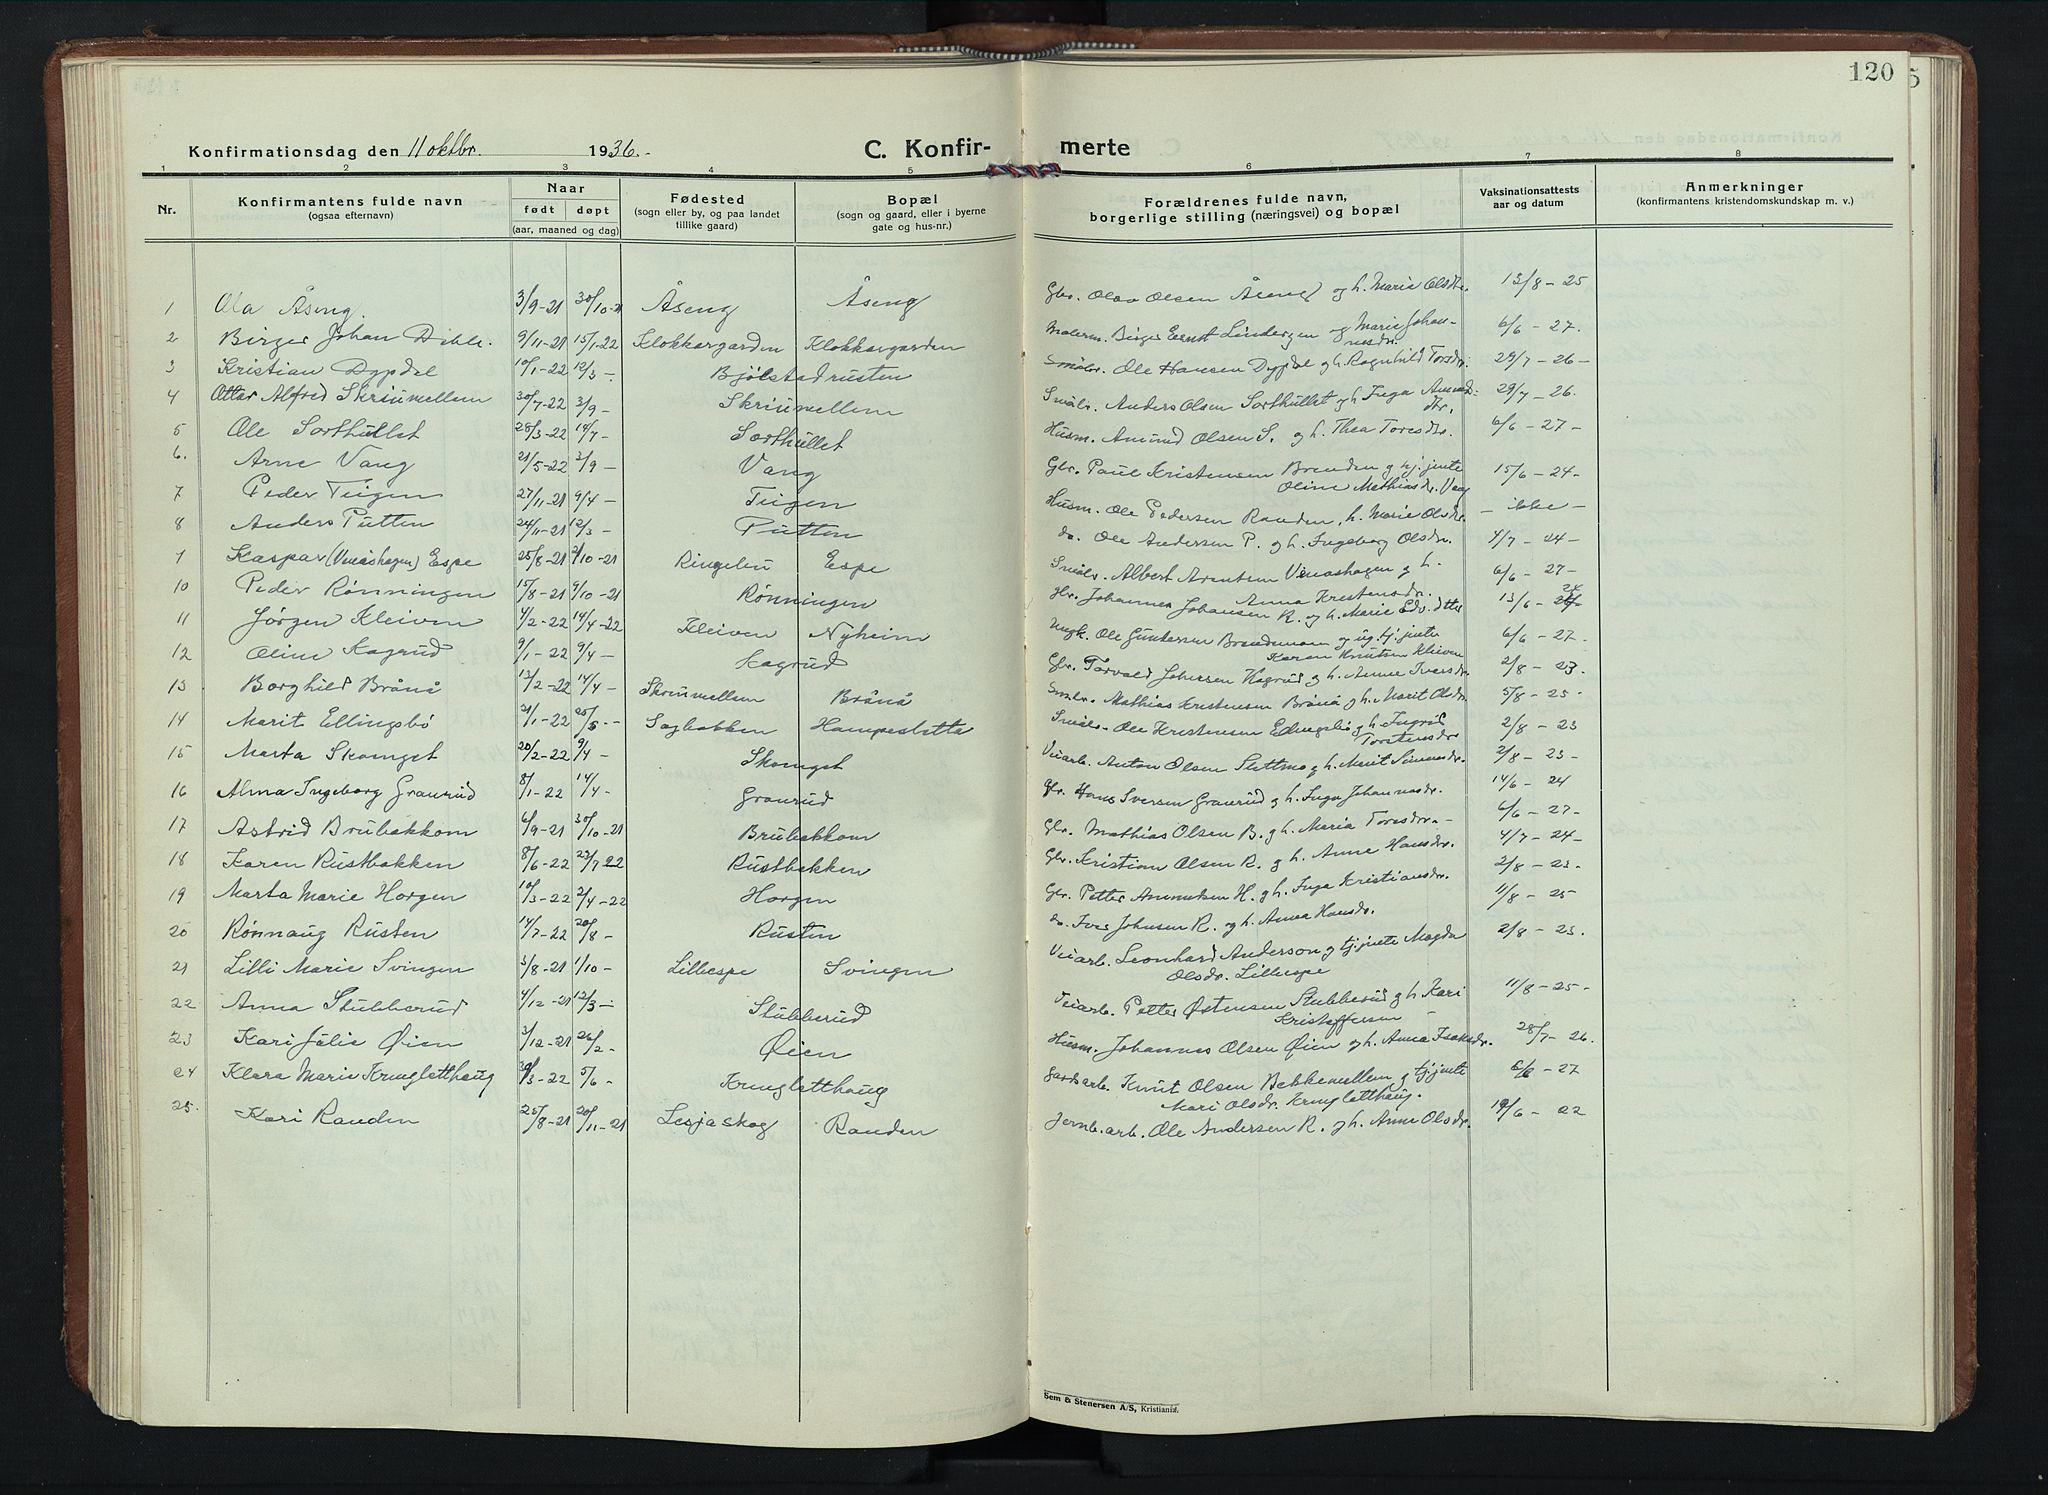 120
Konfirmationsdag den 11 oktbr. 1936.-
C. Konfir- merte
1 2 3 4 5 6 7 8
Nr.
Konfirmantens fulde navn
(ogsaa efternavn)
Naar
født døpt
(aar, maaned og dag)
Fødested
(sogn eller by, og paa landet
tillike gaard)
Bopæl
(sogn og gaard, eller i byerne
gate og hus-nr.)
Forældrenes fulde navn,
borgerlige stilling (næringsvei) og bopæl
Vaksinationsattests
aar og datum
Anmerkninger
(konfirmantens kristendomskundskap m. v.)
1 Ola Åseng. 3/9-21 30/10-21 Åseng Åseng Gbr. Olav Olsen Åseng og h. Marie Olsdr. 13/8-25
2 Birger Johan Dihle. 9/11-21 15/1-22 Klokkargarden Klokkargarden Malerm. Birger Ernst Lindergen og Marie Johan-
nesdr. 6/6-27.
3 Kristian Dypdal 10/1-22 12/3-. Bjølstadrusten Småbr. Ole Hansen Dypdal og h. Ragnhild Torsdr. 29/7-26-
4 Ottar Alfred Skriuvellem 30/7-22 3/9- Skriuvellem Småbr. Anders Olsen Sorthullet og h. Inga Amund-
dtr. 29/7-26.
5 Ole Sorthullet 25/3-22 14/7- Sorthullet Husm. Amund Olsen S. og h. Thea Toresdr. 6/6-27-
6. Arne Vang 21/5-22 3/9- Vang Gbr. Paul Kristensen Brenden og tj. jente
Oline Mathiasdr. Vang 15/6-24-
7 Peder Teigen 27/11-21 9/4- Teigen Husm. Ole Pedersen Randen, h. Marie Olsdr. - ikke -
8 Anders Putten 24/11-21 12/3- Putten do. Ole Andersen P. og h. Ingeborg Olsdr. 4/7-24-
9 Kaspar (Venåshagen) Espe 25/8-21 2/10-21 Ringebu Espe Småbr. Albert Arntsen Venåshagen og h.
Anna Kristensdr. 6/6-27-
10 Peder Rønningen 15/8-21 9/10-21 Rønningen Gbr. Johannes Johansen R. og h. Marie Edv.dtter 13/6-24
11 Jørgen Kleiven 4/2-22 14/4-22 Kleiven Nyheim Ungk. Ole Guttersen Brendemoen og ug. tj. jente
Karen Knutsen Kleiven 6/6-27.
12 Oline Hagrud 9/1-22 9/4- Hagrud Gbr. Torvald Johnsen Hagrud og h. Anne Iversdr. 2/8-23.
13 Borghild Brånå 13/2-22 14/4- Skriuvellem Brånå Småbr. Mathias Kristensen Brånå og h. Marit Olsdr. 5/8-25.
14 Marit Ellingsbø 21/1-22 25/5-- Sagbakken Hampesletta Småbr. Ole Kristensen Ellingsbø og h. Ingrid
Torstensdr. 2/8-23
15 Marta Skomget 20/2-22 9/4- Skomget Veiarb. Anton Olsen Slettmo og h. Marit Simensdr. 2/8-23-
16 Alma Ingeborg Granrud 8/1-22 14/4- Granrud Gbr. Hans Iversen Granrud og h. Inga Johannesdr. 14/6-24
17 Astrid Brubakkom 6/9-21 30/10-21 Brubakkom Gbr. Mathias Olsen B. og h. Maria Toresdr.- 6/6-27
18 Karen Rustbakken 8/6-22 23/7 22 Rustbakken Gbr. Kristian Olsen R. og h. Anne Hansdr. 4/7-24-
19 Marta Marie Horgen 10/3-22 2/4-22 Horgen Gbr. Petter Amundsen H. og h. Inga Kristiansdr. 2/8-23-
20 Rønnaug Rusten 14/7-22 20/8- Rusten do. Iver Johnsen R. og h. Anna Hansdr. 11/8-25
21 Lilli Marie Svingen 3/8-21 1/10- Lilleespe Svingen Veiarb. Leonhard Anderson og tj. jente Magda
Olsdr. Lilleespe 2/8-23.
22 Anna Stubberud 4/12-21 12/3- Stubberud Veiarb. Petter Østensen Stubberud og h. Kari
Kristoffersen - 11/8-25-
23 Kari Julie Øien 3/12-21 26/2- Øien Husm. Johannes Olsen Øien og h. Anna Isaksdr. 28/7-26.
24 Klara Marie Kringletthaug 30/3-22 5/6- Kringletthaug Gardsarb. Knut Olsen Bekkemellem og tj. jente
Mari Olsdr. Kringletthaug. 6/6-27
25. Kari Randen 25/8-21 20/11-21 Lesjaskog Randen Jernb.arb. Ole Andersen R. og h. Anne Olsdr. 19/6-22
Sem & Stenersen A/S, Kristiania.